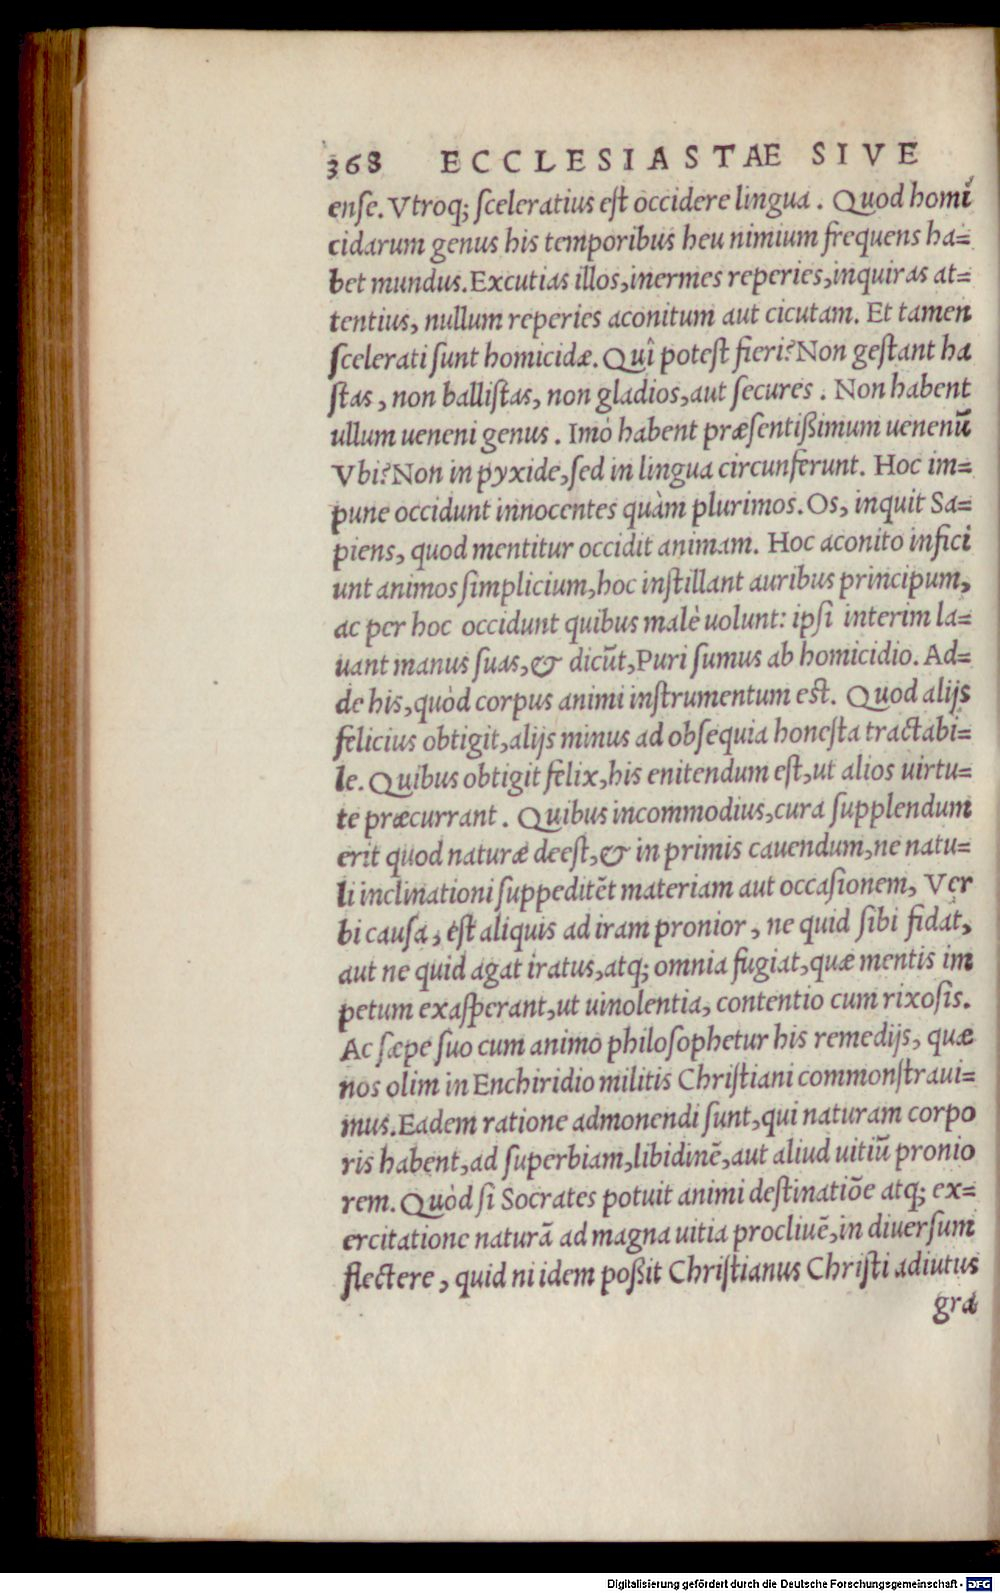 368 ECCLESIASTAE SIVE
ense. Vtroq; sceleratius est occidere lingua. Quod homi
cidarum genus his temporibus heu nimium frequens ha=
bet mundus. Excutias illos, inermes reperies, inquiras at=
tentius, nullum reperies aconitum aut cicutam. Et tamen
scelerati sunt homicidæ. Quî potest fieri? Non gestant ha
stas, non ballistas, non gladios, aut secures. Non habent
ullum ueneni genus. Imò habent præsentißimum uenenū
Vbi? Non in pyxide, sed in lingua circunferunt. Hoc im=
pune occidunt innocentes quàm plurimos. Os, inquit Sa=
piens, quod mentitur occidit animam. Hoc aconito infici
unt animos simplicium, hoc instillant auribus principum,
ac per hoc occidunt quibus malè uolunt: ipsi interim la=
uant manus suas, & dicūt, Puri sumus ab homicidio. Ad=
de his, quòd corpus animi instrumentum est. Quod alijs
felicius obtigit, alijs minus ad obsequia honesta tractabi=
le. Quibus obtigit felix, his enitendum est, ut alios uirtu=
te præcurrant. Quibus incommodius, cura supplendum
erit quod naturæ deest, & in primis cauendum, ne natu=
li inclinationi suppeditēt materiam aut occasionem, Ver
bi causa, est aliquis ad iram pronior, ne quid sibi fidat,
aut ne quid agat iratus, atq; omnia fugiat, quæ mentis im
petum exasperant, ut uinolentia, contentio cum rixosis.
Ac sæpe suo cum animo philosophetur his remedijs, quæ
nos olim in Enchiridio militis Christiani commonstraui=
mus. Eadem ratione admonendi sunt, qui naturam corpo
ris habent, ad superbiam, libidinē, aut aliud uitiū pronio
rem. Quòd si Socrates potuit animi destinatiōe atq; ex=
ercitatione naturā ad magna uitia procliuē, in diuersum
flectere, quid ni idem poßit Christianus Christi adiutus
gra
Digitalisierung gefördert durch die Deutsche Forschungsgemeinschaft - DFG